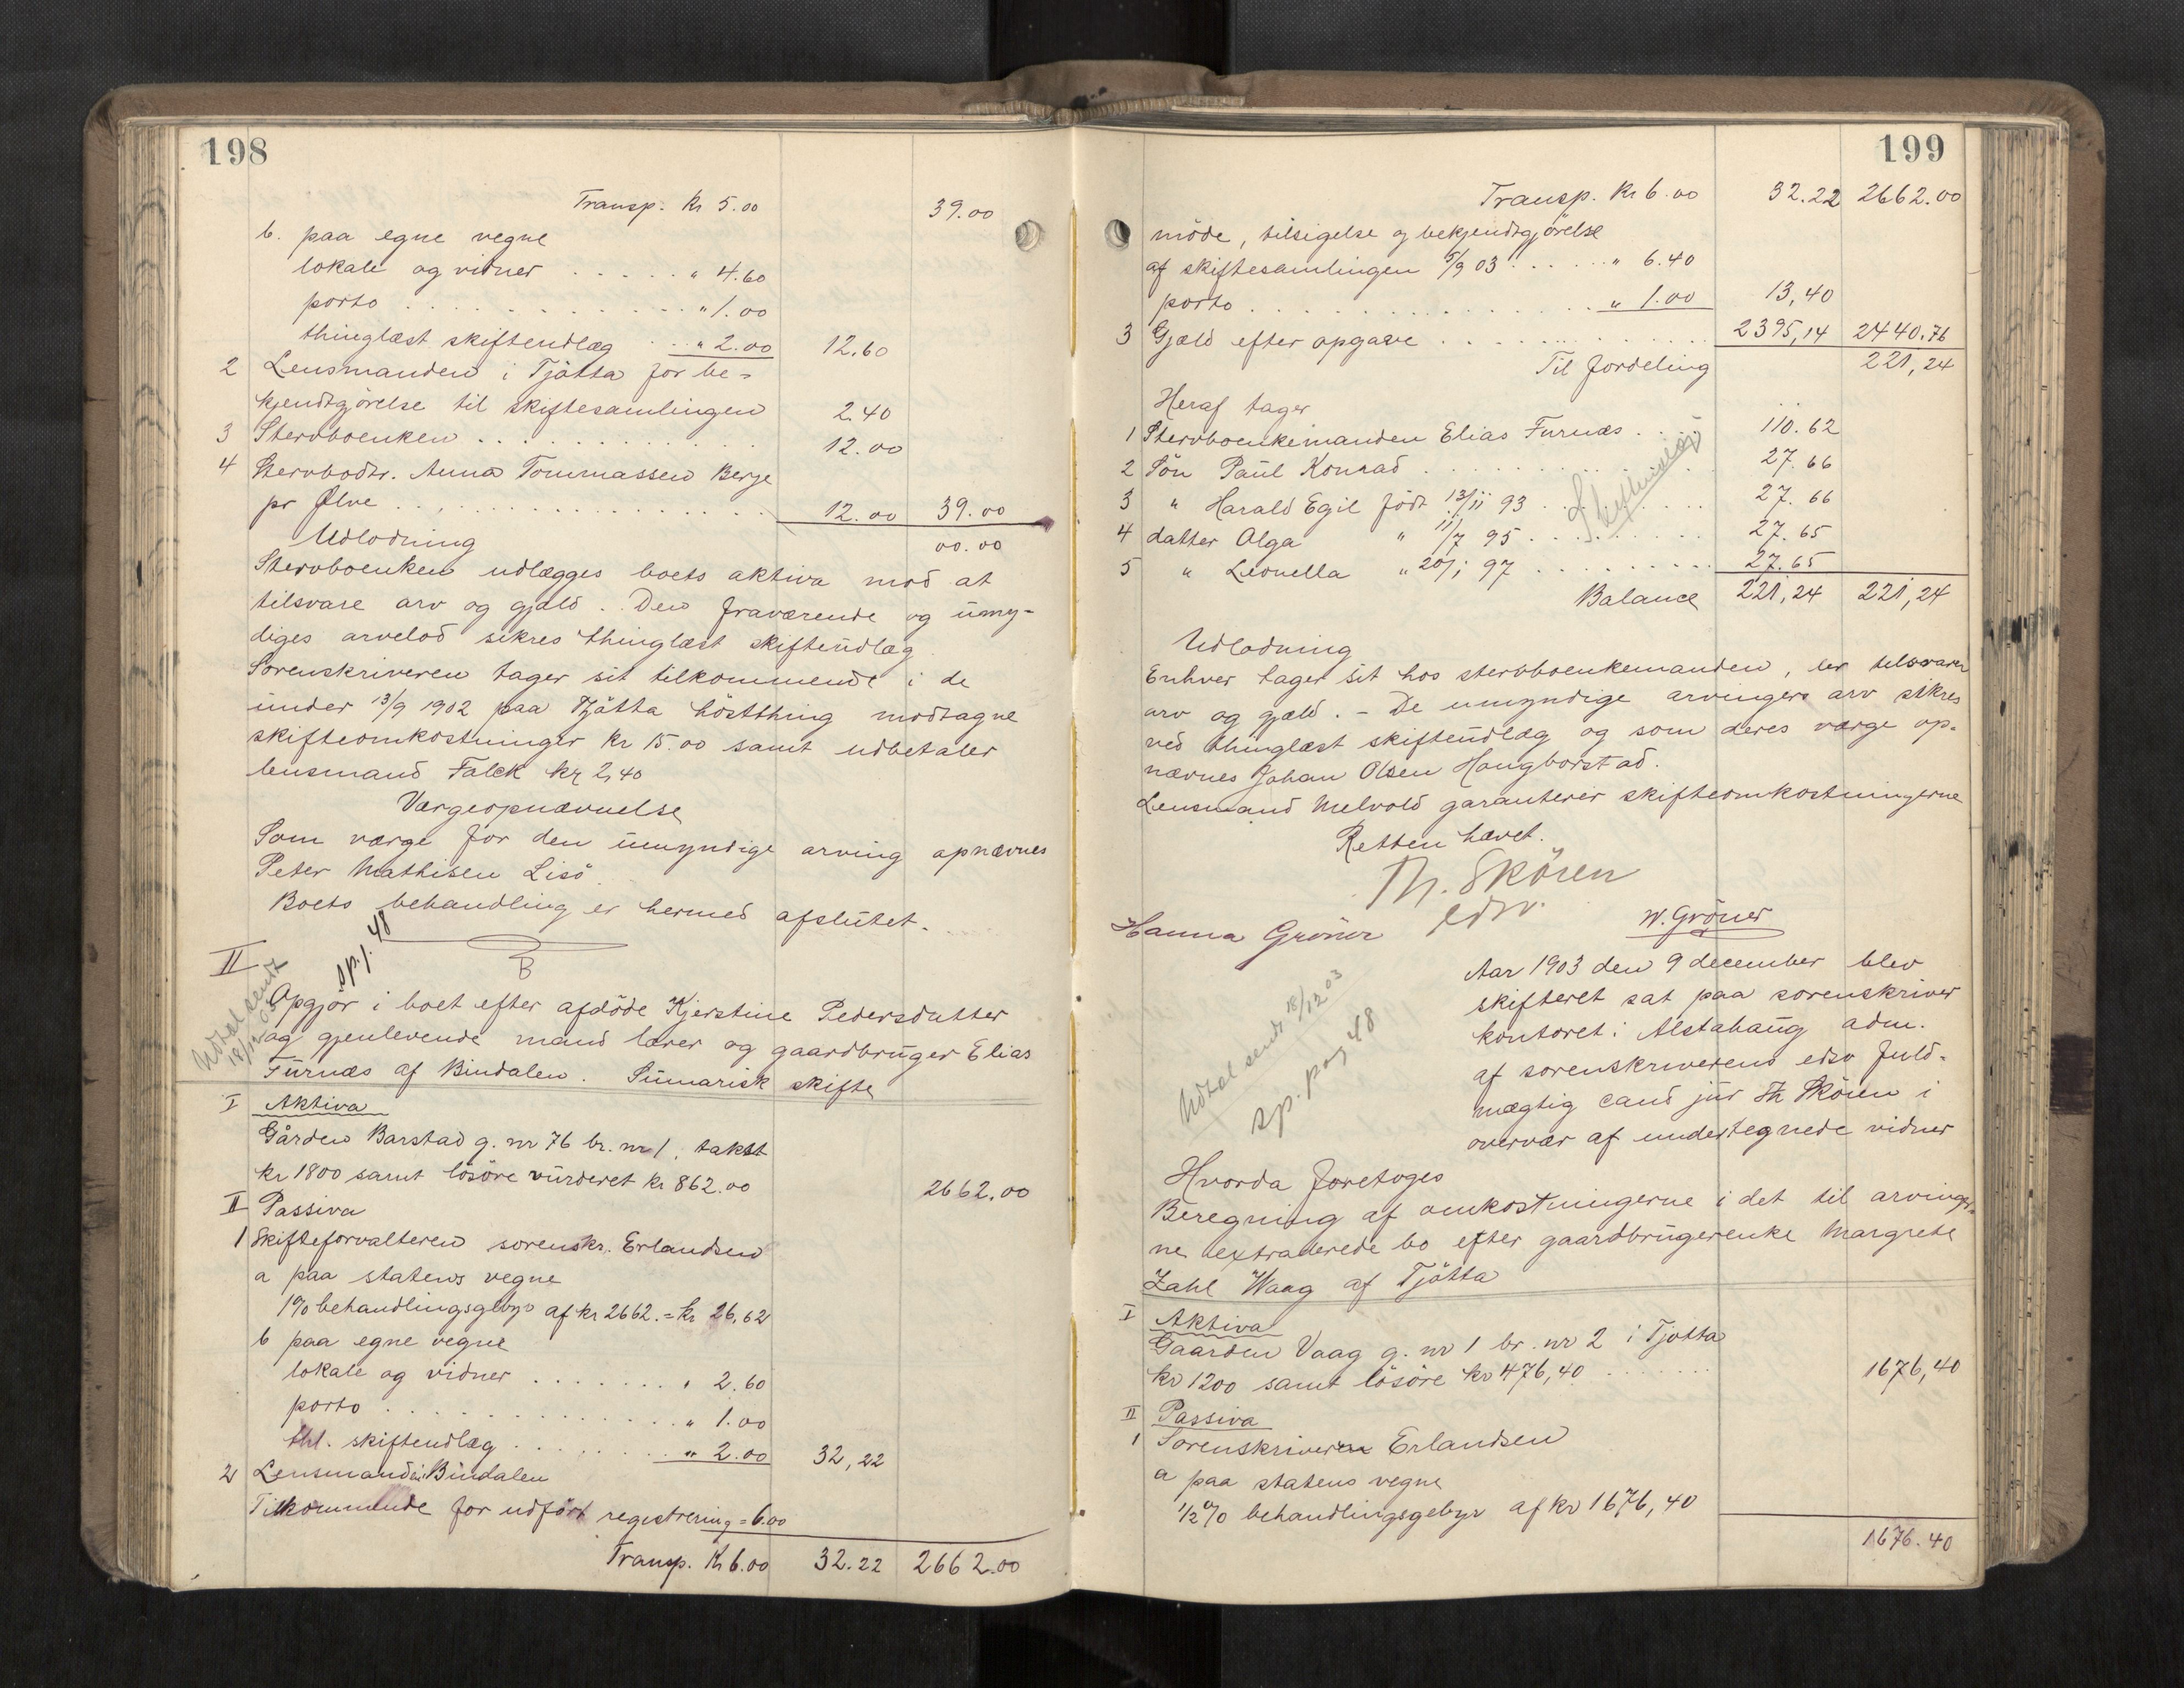 198
Transp. Kr 5.00 39.00
b. paa egne vegne
lokale og vidner . . . . . " 4.60
porto . . . . . . . . . . . . " 1.00
thinglæst skifteudlæg . . . " 2.00 12.60
2 Lensmanden i Tjøtta for be-
kjendtgörelse til skiftesamlingen 2.40
3 Stervboenken . . . . . . . . . . . 12.00
4 Stervbodtr. Anna Tommassen Berge
pr Ølve . . . . . . . . . . . . . . . 12.00 39.00
Udlodning 00.00
Stervboenken udlægges boets aktiva mod at
tilsvare arv og gjæld. Den fraværende og umy-
diges arvelod sikres thinglæst skifteudlæg.
Sorenskriveren tager sit tilkommende i de
under 13/9 1902 paa Tjøtta höstthing modtagne
skifteomkostninger kr 15.00 samt udbetaler
lensmand Falck kr 2,40
Værgeopnævnelse
Som værge for den umyndige arving opnævnes
Peter Mathisen Lisö.
Boets behandling er hermed afsluttet.
II
sp. p. 48
B
Udtal sendt
18/12 03
Opgjör i boet efter afdöde Kjerstine Pedersdatter
og gjenlevende mand lærer og gaardbruger Elias
Furnæs af Bindalen. Sumarisk skifte
I Aktiva
Gården Barstad g. nr 76 br. nr 1, takst
kr 1800 samt lösöre vurderet kr 862.00 2662.00
II Passiva
1 Skifteforvalteren sorenskr. Erlandsen
a paa statens vegne
1% behandlingsgebyr af kr 2662. = kr 26,62
b paa egne vegne
lokale og vidner . . . . . . . " 2.60
porto . . . . . . . . . . . . . . " 1.00
thl. skifteudlæg . . . . . . . . " 2.00 32,22
2 Lensmand i Bindalen
Tilkommende for udfört registrering = 6.00
Transp. Kr 6.00 32.22 2662.00
199
Transp. Kr 6.00 32.22 2662.00
möde, tilsigelse og bekjendtgjörelse
af skiftesamlingen 5/9 03 . . . . . " 6.40
porto . . . . . . . . . . . . . . . " 1.00 13,40
3 Gjæld efter opgave . . . . . . . . . . . 2395,14 2440.76
Til fordeling 221,24
Heraf tager
1 Stervboenkemanden Elias Furnæs . . . . 110.62
2 Sön Paul Konrad . . . . . . . . . . . 27.66
3 " Harald Egil födt 13/11 93 . . . . . . . 27.66
Skifteudlæg
4 datter Olga " 11/7 95 . . . . . . . . 27.65
5 " Leonella " 20/1 97 . . . . . . . . 27.65
Balance 221,24 221,24
Udlodning
Enhver tager sit hos stervboenkemanden, der tilsvarer
arv og gæld. - De umyndige arvingers arv sikres
ved thinglæst skifteudlæg og som deres værge op-
nævnes Johan Olsen Hongborstad.
Lensmand Melvold garanterer skifteomkostningerne
Retten hævet.
Th. Skören
edsv.
Hanna Gröner W. Gröner
Aar 1903 den 9 december blev
skifteret sat paa sorenskriver
kontoret i Alstahaug adm.
af sorenskriverens edsv fuld-
mægtig cand jur Th Skören i
overvær af undertegnede vidner
Udtal sendt 18/12 03
Sp. pag 48
Hvorda foretoges
Beregning af omkostningerne i det til arvinger-
ne extraderede bo efter gaardbrugerenke Margrete
Zahl Waag af Tjøtta
I Aktiva
Gaarden Vaag g. nr 1 br. nr 2 i Tjotta
kr 1200 samt lösöre kr 476,40 . . . . . . 1676,40
II Passiva
1 Sorenskriveren Erlandsen
a paa statens vegne
1/2% behandlingsgebyr af kr 1676,40
1676.40